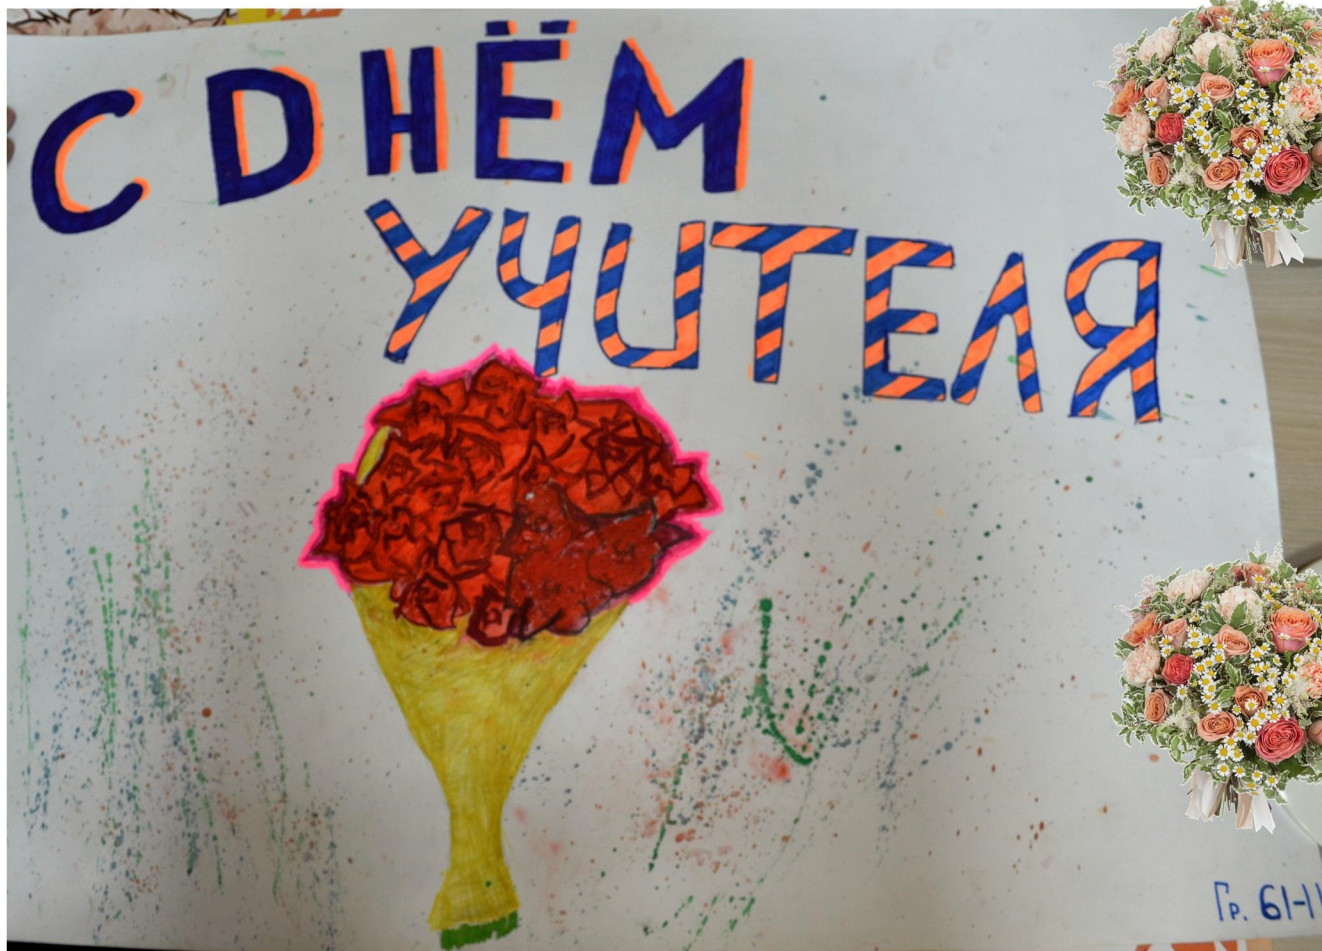 С ДНЁМ
УЧИТЕЛЯ
Гр. 61-11